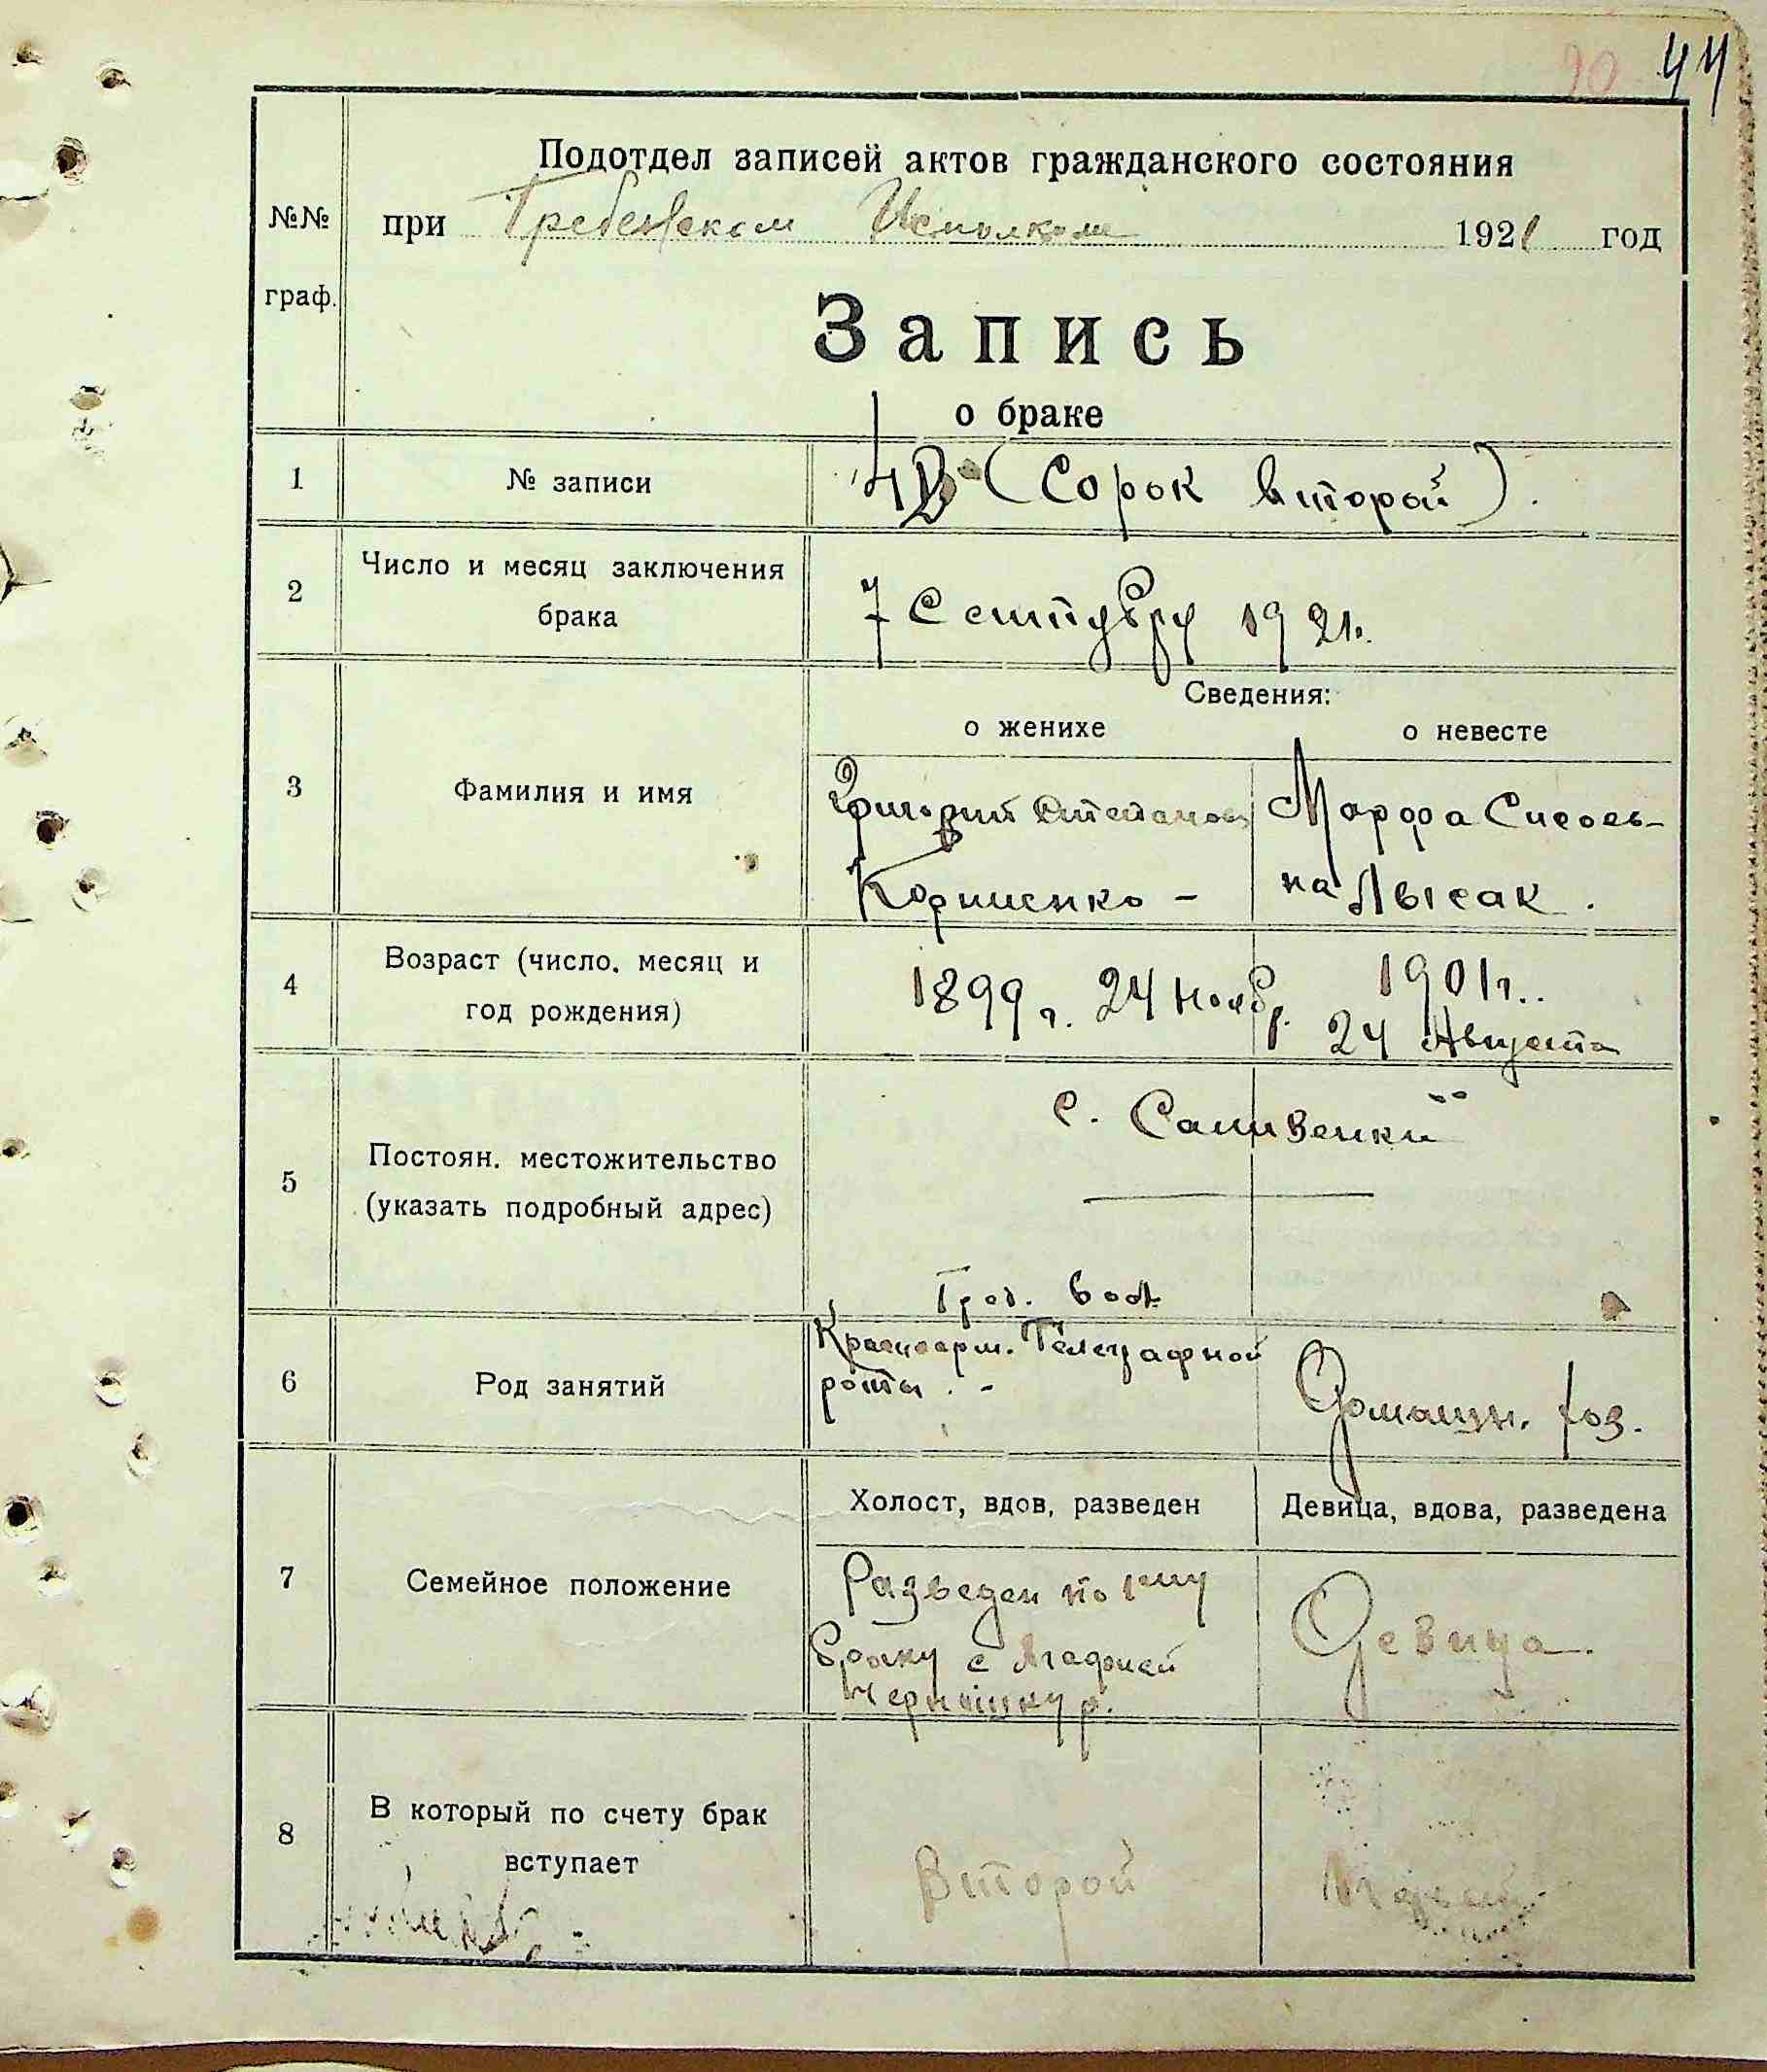 90 44
Подотдел записей актов гражданского состояния
№№ при Гребенском Исполкоме 1921 год
граф.
Запись
о браке
1 № записи 42 (Сорок второй).
2 Число и месяц заключения
брака
7 Сентября 1921г.
Сведения:
о женихе о невесте
3 Фамилия и имя
Григорий Степанов Марфа Сысоев-
Корниенко - на Лысак.
4 Возраст (число, месяц и
год рождения)
1899 г. 24 Нояб. 1901г..
24 Августа
5 Постоян. местожительство
(указать подробный адрес)
с.
6 Род занятий
Красноарм. Телеграфной
роты. -
Домашн. хоз.
7 Семейное положение
Холост, вдов, разведен Девица, вдова, разведена
Разведен по 1му Девица.
браку с
8 В который по счету брак
вступает
Второй